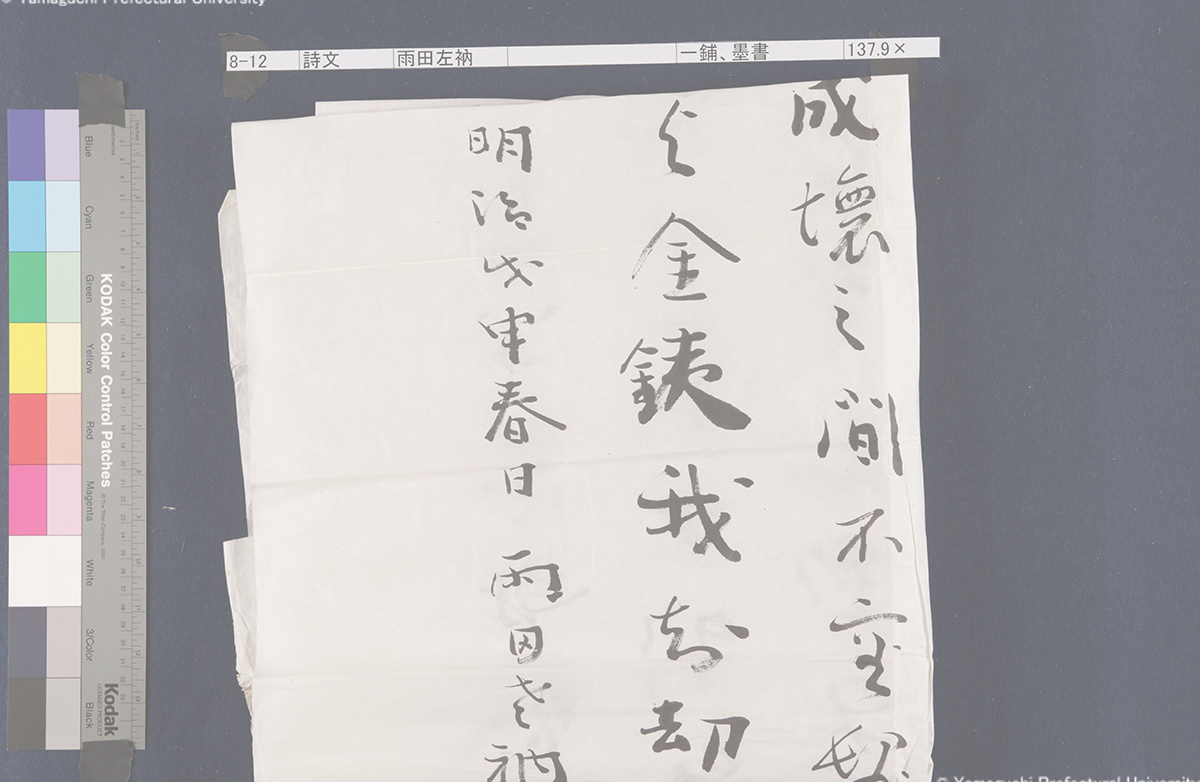 © Yamaguchi Prefectural University
8-12 詩文 雨田左衲 一鋪、墨書 137.9×
成壞之間不
金銕我却
明治戊申春日 雨田老衲
Blue
Cyan
Green
Yellow
Red
Magenta
White
3/Color
Black
KODAK Color Control Patches
Kodak
LICENSED PRODUCT
© Yamaguchi Prefectural University